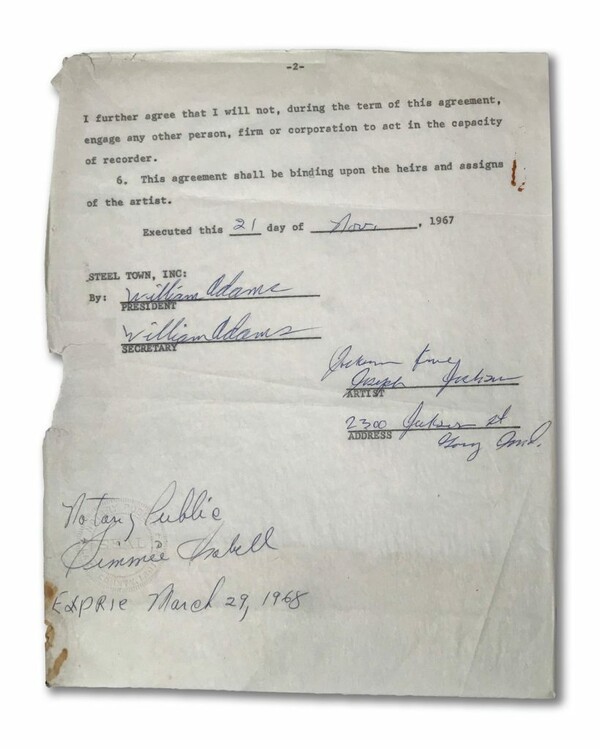 -2-
I further agree that I will not, during the term of this agreement,
engage any other person, firm or corporation to act in the capacity
of recorder.
6. This agreement shall be binding upon the heirs and assigns
of the artist.
Executed this 21 day of Nov. , 1967
STEEL TOWN, INC:
By: William Adams
PRESIDENT
William Adams
SECRETARY
Jackson Five
Joseph Jackson
ARTIST
2300 Jackson St
ADDRESS
Gary Ind.
Notary Public
Jimmie
EXPRIE March 29, 1968